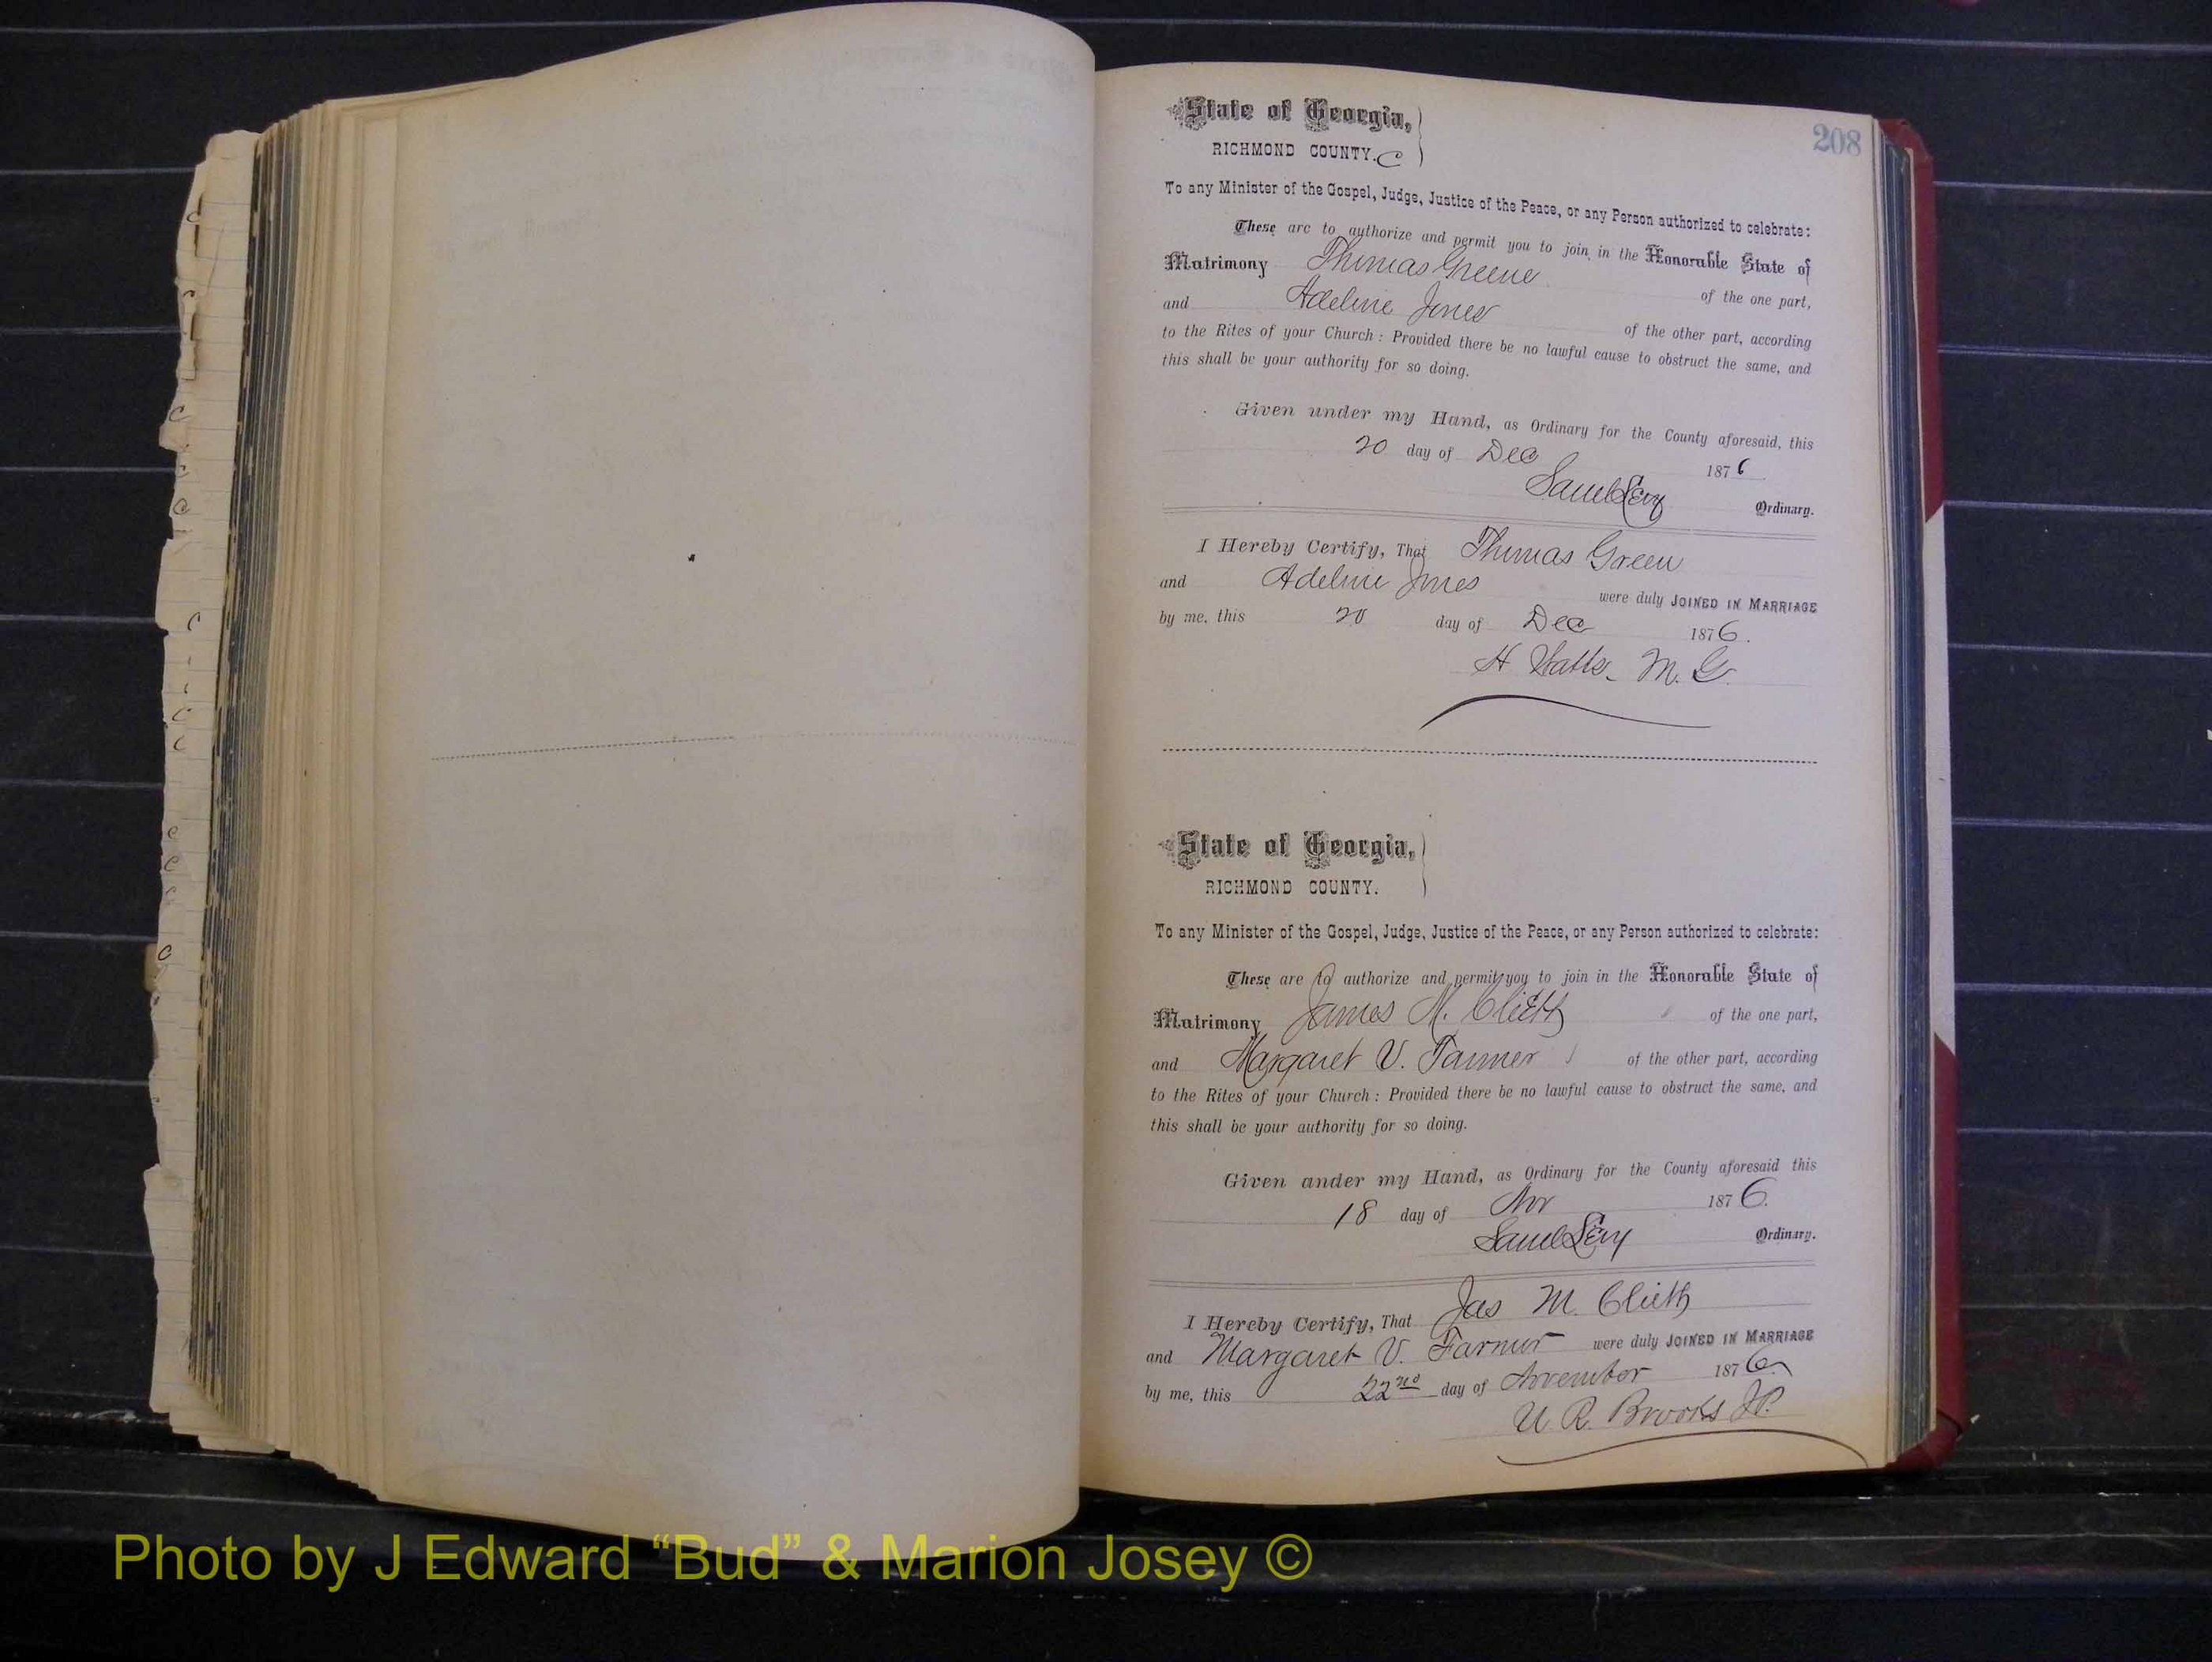 208
State of Georgia,
RICHMOND COUNTY. C
To any Minister of the Gospel, Judge, Justice of the Peace, or any Person authorized to celebrate:
These are to authorize and permit you to join in the Honorable State of
Matrimony Thomas Greene of the one part,
and Adeline Jones of the other part, according
to the Rites of your Church: Provided there be no lawful cause to obstruct the same, and
this shall be your authority for so doing.
Given under my Hand, as Ordinary for the County aforesaid, this
20 day of Dec 1876
Saml Levy Ordinary.
I Hereby Certify, That Thomas Green
and Adeline Jones were duly JOINED IN MARRIAGE
by me, this 20 day of Dec 1876.
H Watts. M. G.
State of Georgia,
RICHMOND COUNTY.
To any Minister of the Gospel, Judge, Justice of the Peace, or any Person authorized to celebrate:
These are to authorize and permit you to join in the Honorable State of
Matrimony James M. Clieth of the one part,
and Margaret V. Farmer of the other part, according
to the Rites of your Church: Provided there be no lawful cause to obstruct the same, and
this shall be your authority for so doing.
Given under my Hand, as Ordinary for the County aforesaid this
18 day of Nov 1876.
Saml Levy Ordinary.
I Hereby Certify, That Jas M. Clieth
and Margaret V. Farmer were duly JOINED IN MARRIAGE
by me, this 22nd day of November 1876
U. R. Brooks J.P.
Photo by J Edward “Bud” & Marion Josey ©